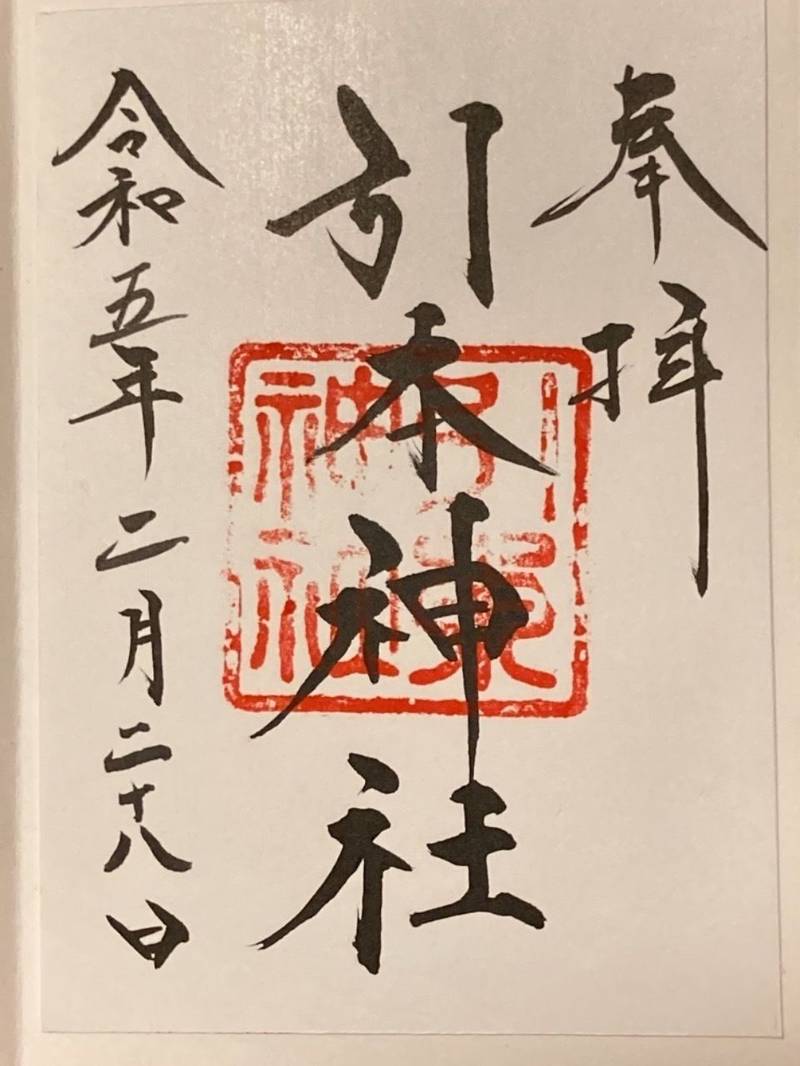 奉拝
引本神社
令和五年二月二十八日